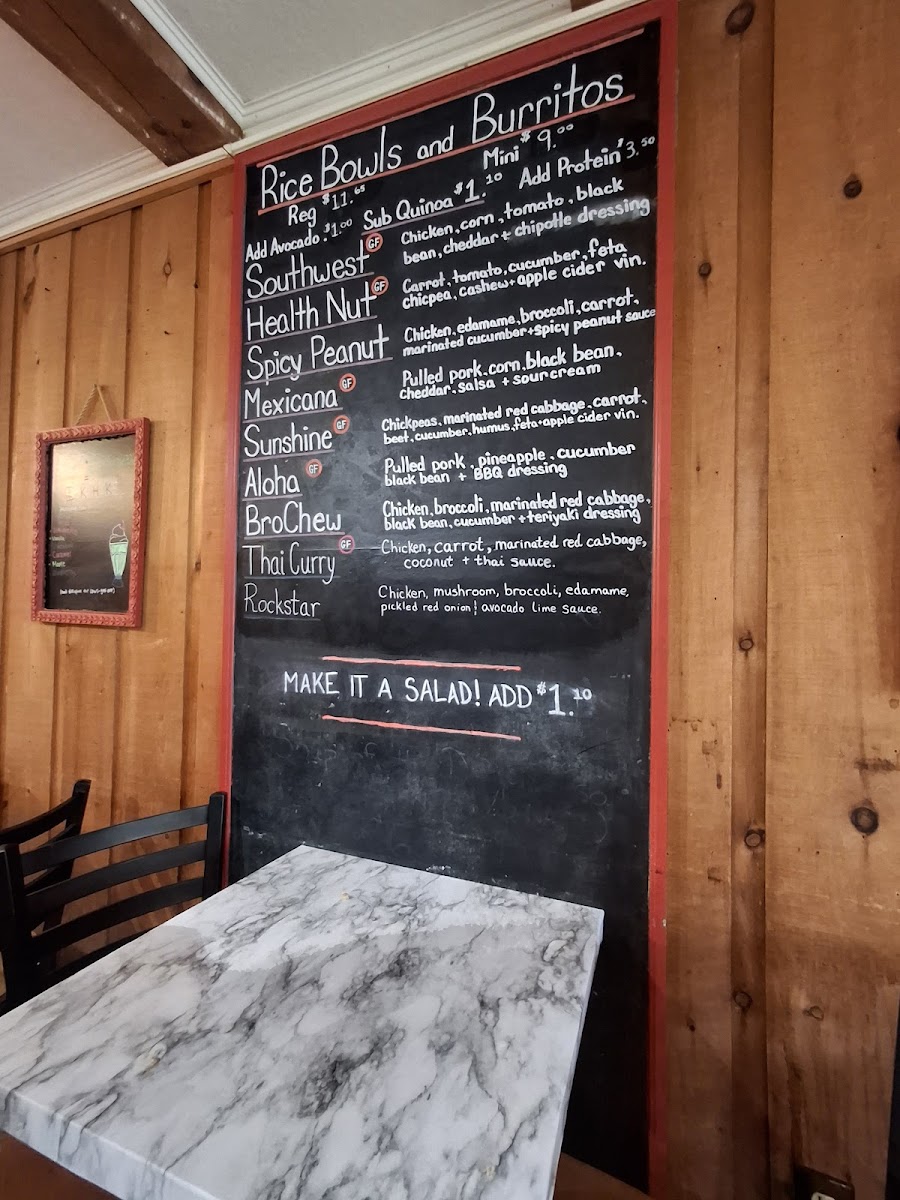 Rice Bowls and Burritos
Reg $11.65 Mini $9.00
Add Avocado $1.00 Sub Quinoa $1.10 Add Protein $3.50
Southwest GF
Chicken, corn, tomato, black
bean, cheddar + chipotle dressing
Health Nut GF
Carrot, tomato, cucumber, feta
chicpea, cashew + apple cider vin.
Spicy Peanut
Chicken, edamame, broccoli, carrot,
marinated cucumber + spicy peanut sauce
Mexicana GF
Pulled pork, corn, black bean,
cheddar, salsa + sour cream
Sunshine GF
Chickpeas, marinated red cabbage, carrot,
beet, cucumber, humus, feta + apple cider vin.
Aloha GF
Pulled pork, pineapple, cucumber
black bean + BBQ dressing
BroChew
Chicken, broccoli, marinated red cabbage,
black bean, cucumber + teriyaki dressing
Thai Curry GF
Chicken, carrot, marinated red cabbage,
coconut + thai sauce.
Rockstar
Chicken, mushroom, broccoli, edamame,
pickled red onion! avocado lime sauce.
MAKE IT A SALAD! ADD $1.10